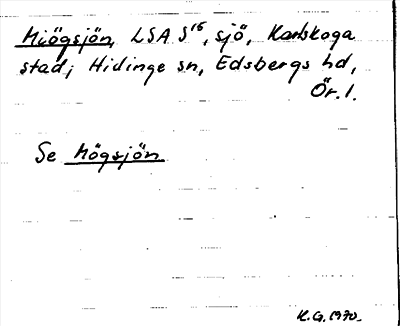 Miögsjön, LSA S¹⁵, sjö, Karlskoga
stad; Hidinge sn, Edsbergs hd,
Ör. l.
Se Mögsjön
K.G. 1970.